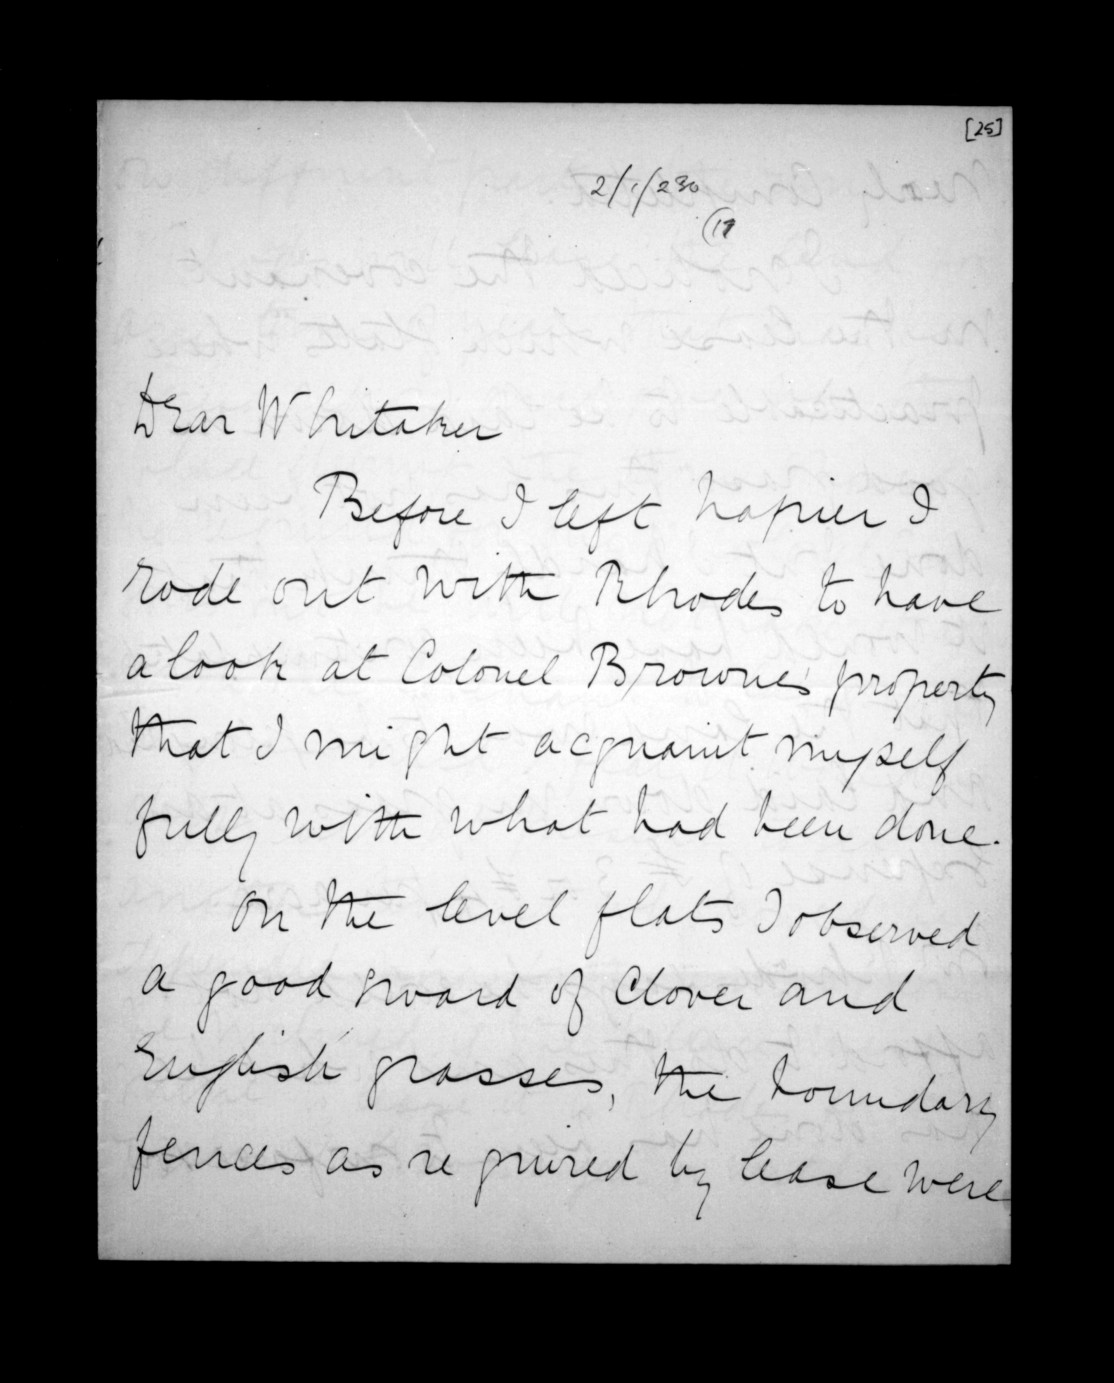 [25]
2/1/230
(17
Dear Whitaker
Before I left Napier I
rode out with Rhodes to have
a look at Colonel Browne's property
that I might acquaint myself
fully with what had been done.
On the level flats I observed
a good sward of Clover and
English grasses, the boundary
fences as required by lease were